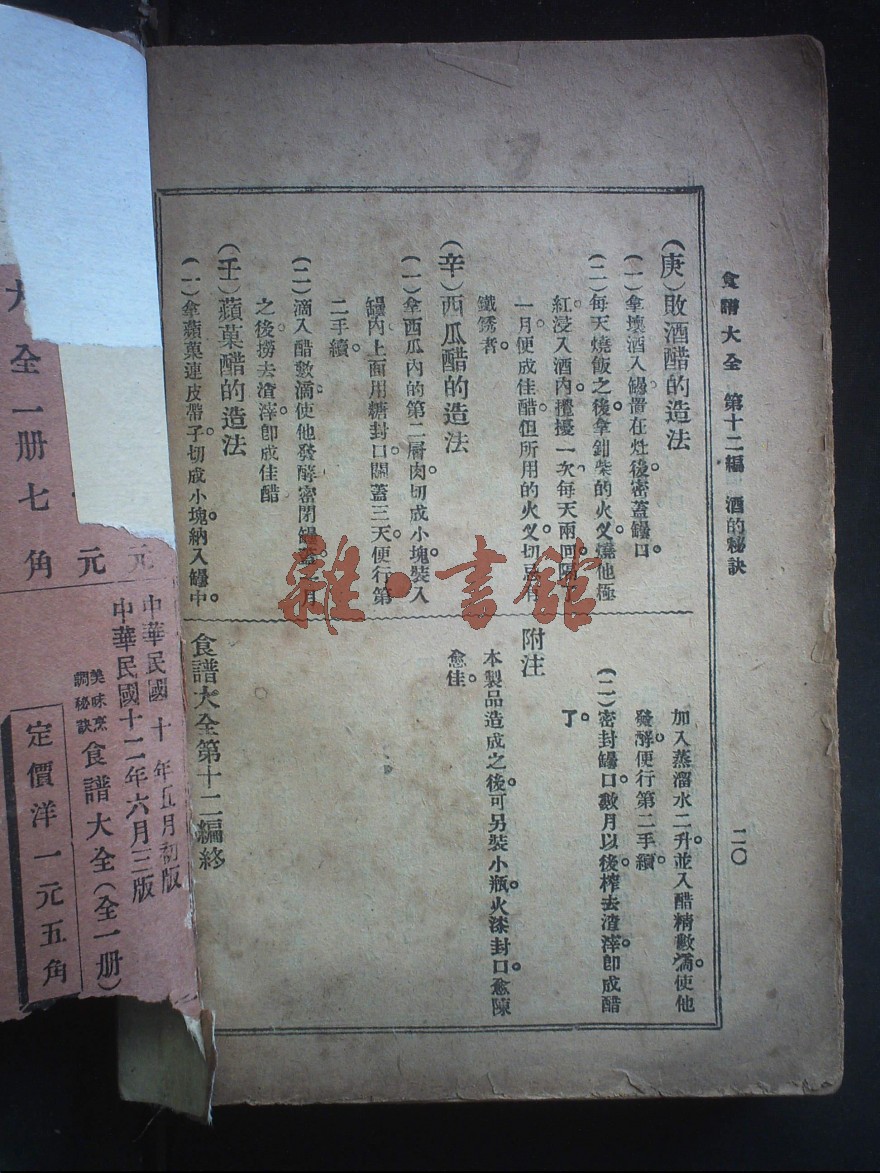 食譜大全 第十二編 酒的秘訣
二〇
(庚)敗酒醋的造法
(一)拿壞酒入罎。置在灶後。密蓋罎口。
(二)每天燒飯之後。拿鉗柴的火叉。燒他極
紅。浸入酒內。攪擾一次。每天兩回。隔了
一月。便成佳醋。但所用的火叉。切忌有
鐵銹者。
(辛)西瓜醋的造法
(一)拿西瓜內的第二層肉。切成小塊。裝入
罎內。上面用糖封口。關蓋三天。便行第
二手續。
(二)滴入醋數滴。使他發酵。密閉罎蓋。一月
之後。撈去渣滓。卽成佳醋
(壬)蘋菓醋的造法
(一)拿蘋菓連皮帶子。切成小塊。納入罎中。
加入蒸溜水二升。並入醋精數滴。使他
發酵。便行第二手續。
(二)密封罎口。數月以後。榨去渣滓。卽成醋
了。
附注
本製品造成之後。可另裝小瓶。火漆封口。愈陳
愈佳。
食譜大全第十二編終
雜·書館
中華民國十年五月初版
中華民國十二年六月三版
美味烹調秘訣 食譜大全(全一册)
定價洋一元五角
元 元
大全一册七角